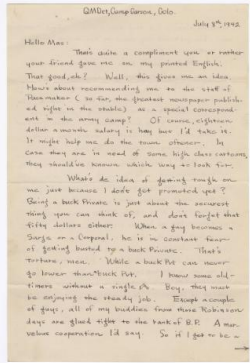 QMDet, Camp Carson, Colo.
July 8th, 1942
Hello Mac:
That's quite a compliment you or rather
your friend gave me on my printed English.
That good, eh? Well, this gives me an idea.
How's about recommending me to the staff of
Pacemaker (so far, the greatest newspaper publish-
ed right in the studio) as a special correspond-
ent in the army camp? Of course, eighteen
dollar a month salary is hay but I'd take it.
It might help me do the town oftener. In
case they are in need of some high class cartoons,
they should've known which way to look for.
What's de idea of getting tough on
me just because I don't get promoted yet?
Being a buck Private is just about the securest
thing you can think of, and don't forget that
fifty dollars either. When a guy becomes a
Sarge or a Corporal, he is in constant fear
of getting busted to a buck Private. That's
torture, man. While a buck Pvt can never
go lower than "buck Pvt. I know some old-
timers without a single Pfc. Boy, they must
be enjoying the steady job. Except a couple
of guys, all of my buddies from there Robinson
days are glued tight to the rank of B.P. A mar-
velous cooperation I'd say. So if I get to be —